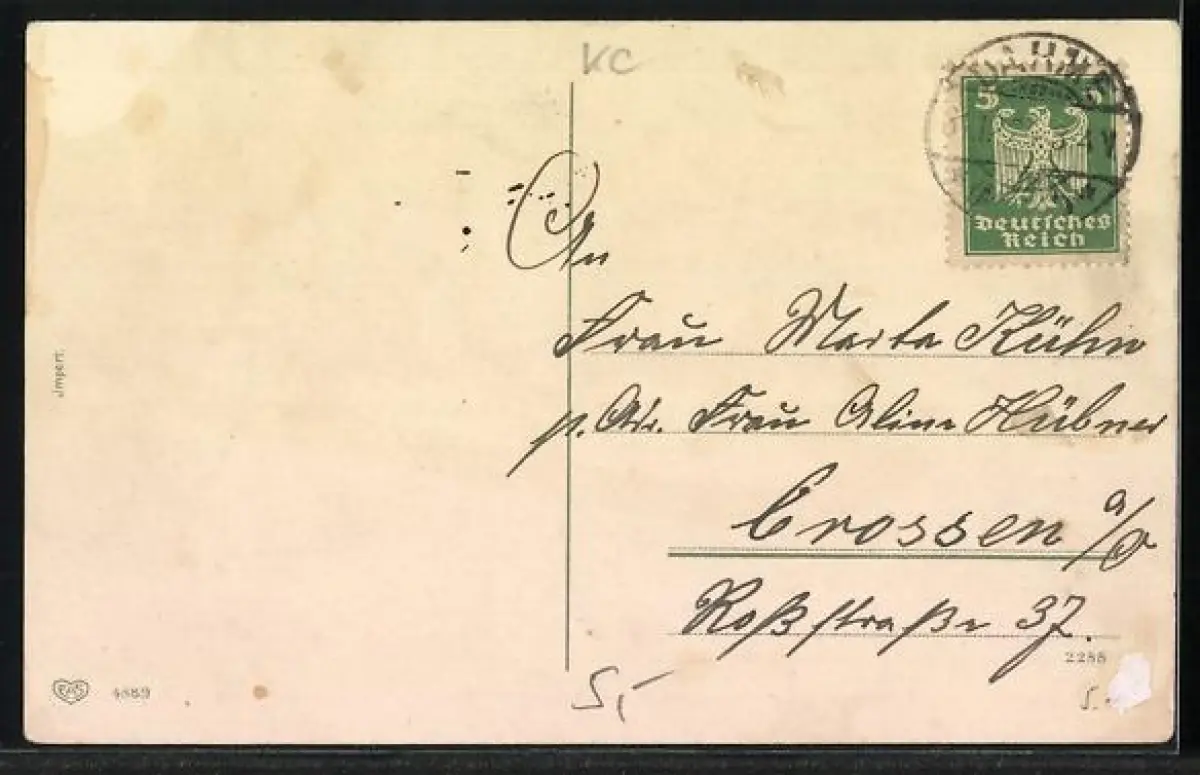 KC
5 5
Deutsches
Reich
An
Frau Marta Kühn
p. Adr. Frau Aline Hübner
Crossen a/O
Roßstraße 37.
2288
Impert.
EAS 4889
5,-